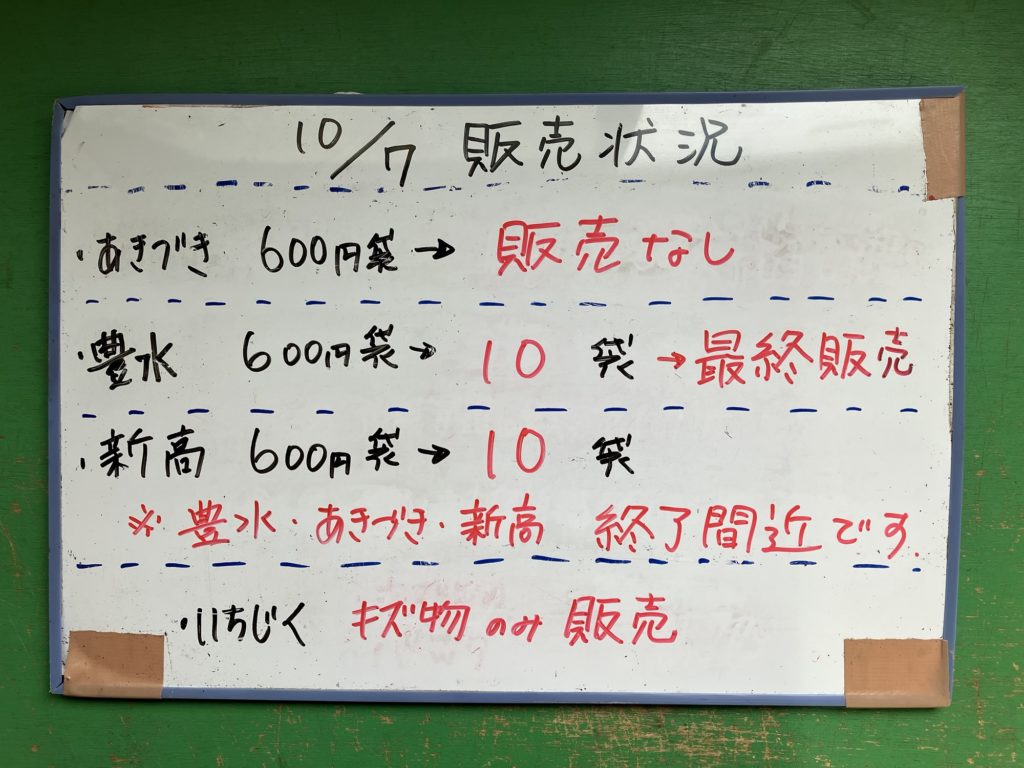 10/7 販売状況
・あきづき 600円袋→ 販売なし
・豊水 600円袋→ 10 袋 →最終販売
・新高 600円袋→ 10 袋
※豊水・あきづき・新高 終了間近です.
・いちじく キズ物のみ 販売